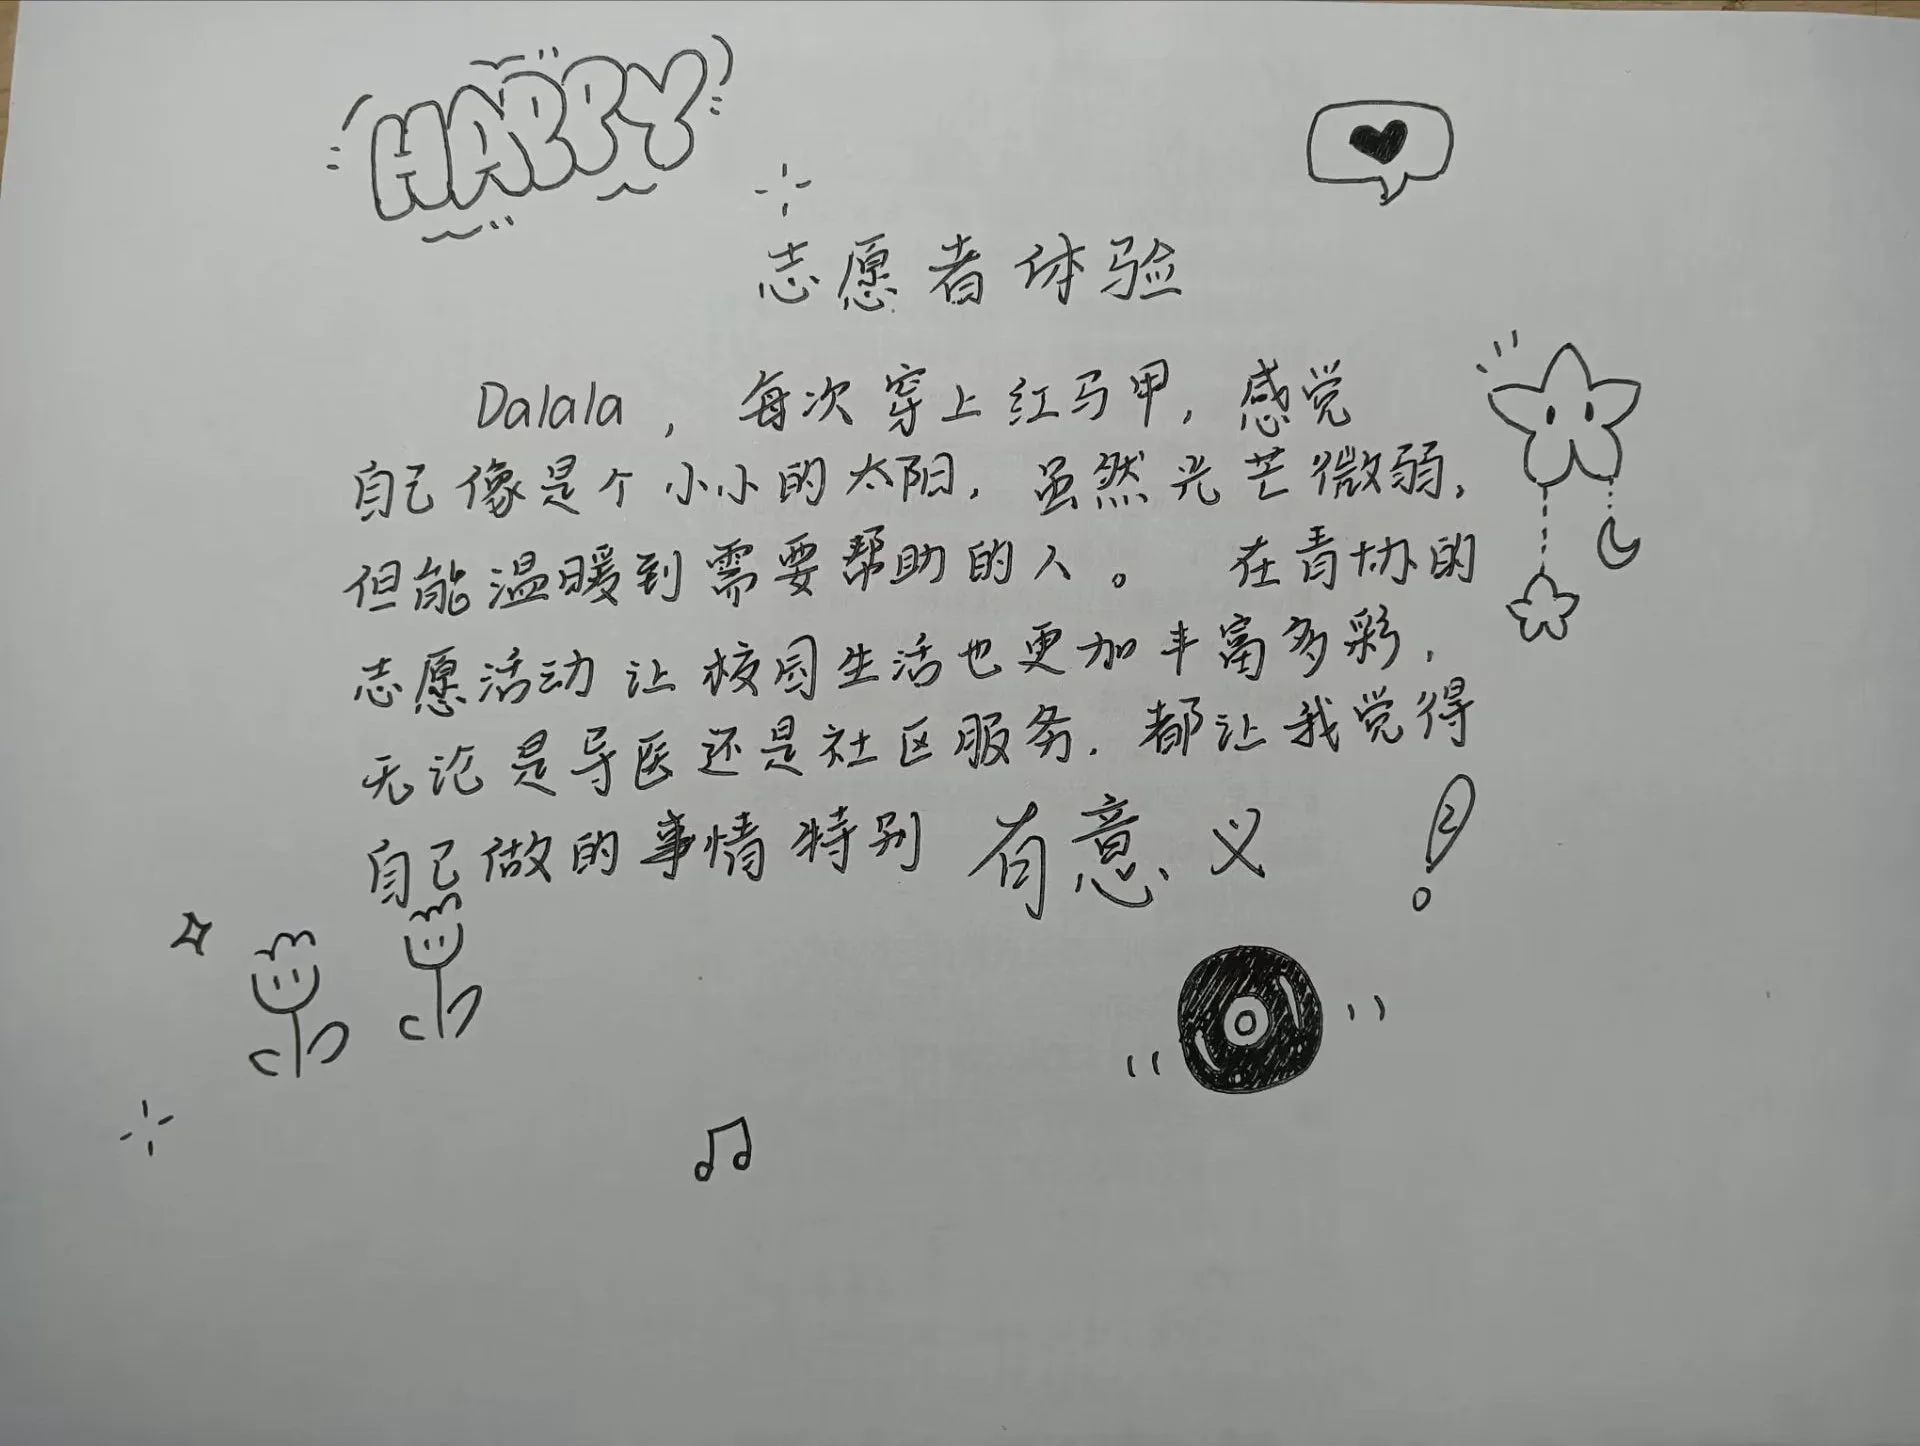 HAPPY
志愿者体验
Dalala，每次穿上红马甲，感觉
自己像是个小小的太阳，虽然光芒微弱，
但能温暖到需要帮助的人。 在青协的
志愿活动让校园生活也更加丰富多彩，
无论是导医还是社区服务，都让我觉得
自己做的事情特别有意义！